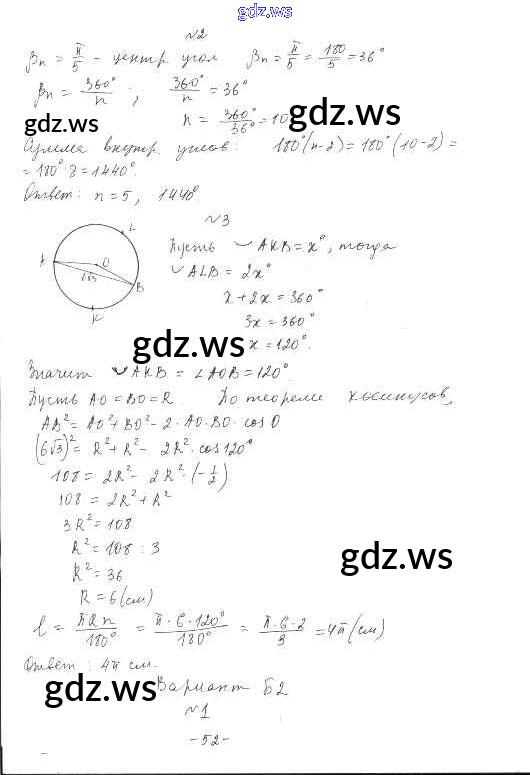 gdz.ws
№2
βn = π/5 - центр угол βn = π/5 = 180/5 = 36°
βn = 360°/n ; 360°/n = 36°
n = 360°/36° = 10
gdz.ws gdz.ws
Сумма внутр. углов: 180°(n-2) = 180°(10-2) =
= 180°·8 = 1440°.
Ответ: n = 5, 1440°.
№3
L
A O B
6√3
K
Пусть ◡AKB = x°, тогда
◡ALB = 2x°
x + 2x = 360°
3x = 360°
x = 120°.
gdz.ws
Значит ◡AKB = ∠AOB = 120°
Пусть AO = BO = R. По теореме косинусов,
AB² = AO² + BO² - 2·AO·BO·cos O
(6√3)² = R² + R² - 2R²·cos120°
108 = 2R² - 2R²·(-1/2)
108 = 2R² + R²
3R² = 108
R² = 108 : 3
gdz.ws
R² = 36
R = 6 (см)
l = πRn/180° = π·6·120°/180° = π·6·2/3 = 4π (см)
Ответ: 4π см.
gdz.ws gdz.ws
Вариант Б2
№1
-52-